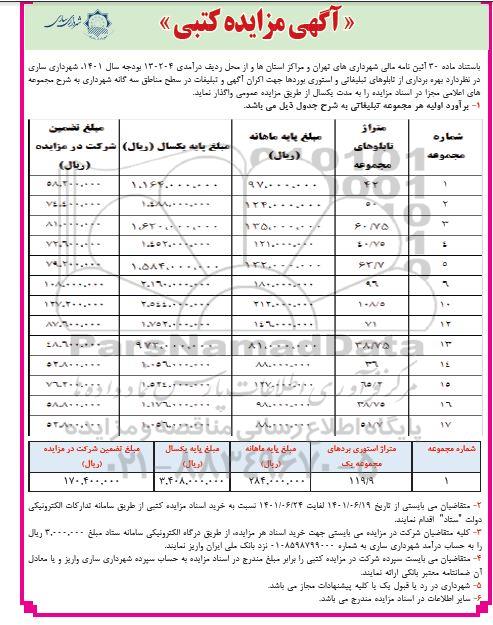 « آگهی مزایده کتبی »
شهرداری ساری
باستناد ماده ۳۰ آئین نامه مالی شهرداری های تهران و مراکز استان ها و از محل ردیف درآمدی ۱۳۰۲۰۴ بودجه سال ۱۴۰۱، شهرداری ساری
در نظردارد بهره برداری از تابلوهای تبلیغاتی و استوری بوردها جهت اکران آگهی و تبلیغات در سطح مناطق سه گانه شهرداری به شرح مجموعه
های اعلامی مجزا در اسناد مزایده را به مدت یکسال از طریق مزایده عمومی واگذار نماید.
۱- برآورد اولیه هر مجموعه تبلیغاتی به شرح جدول ذیل می باشد.
شماره مجموعه | متراژ تابلوهای مجموعه | مبلغ پایه ماهانه (ریال) | مبلغ پایه یکسال (ریال) | مبلغ تضمین شرکت در مزایده (ریال)
۱ | ۴۲ | ۹۷.۰۰۰.۰۰۰ | ۱.۱۶۴.۰۰۰.۰۰۰ | ۵۸.۲۰۰.۰۰۰
۲ | ۵۰ | ۱۲۴.۰۰۰.۰۰۰ | ۱.۴۸۸.۰۰۰.۰۰۰ | ۷۴.۴۰۰.۰۰۰
۳ | ۶۰/۷۵ | ۱۳۵.۰۰۰.۰۰۰ | ۱.۶۲۰.۰۰۰.۰۰۰ | ۸۱.۰۰۰.۰۰۰
۴ | ۴۰/۷۵ | ۱۲۱.۰۰۰.۰۰۰ | ۱.۴۵۲.۰۰۰.۰۰۰ | ۷۲.۶۰۰.۰۰۰
۵ | ۶۲/۷ | ۱۳۲.۰۰۰.۰۰۰ | ۱.۵۸۴.۰۰۰.۰۰۰ | ۷۹.۲۰۰.۰۰۰
۶ | ۹۶ | ۱۸۰.۰۰۰.۰۰۰ | ۲.۱۶۰.۰۰۰.۰۰۰ | ۱۰۸.۰۰۰.۰۰۰
۱۰ | ۱۰۸/۵ | ۲۱۲.۰۰۰.۰۰۰ | ۲.۵۴۴.۰۰۰.۰۰۰ | ۱۲۷.۲۰۰.۰۰۰
۱۲ | ۷۱ | ۱۴۶.۰۰۰.۰۰۰ | ۱.۷۵۲.۰۰۰.۰۰۰ | ۸۷.۶۰۰.۰۰۰
۱۳ | ۳۸/۷۵ | ۸۱.۰۰۰.۰۰۰ | ۹۷۲.۰۰۰.۰۰۰ | ۴۸.۶۰۰.۰۰۰
۱۴ | ۳۶ | ۸۸.۰۰۰.۰۰۰ | ۱.۰۵۶.۰۰۰.۰۰۰ | ۵۲.۸۰۰.۰۰۰
۱۵ | ۶۵/۲ | ۱۲۷.۰۰۰.۰۰۰ | ۱.۵۲۴.۰۰۰.۰۰۰ | ۷۶.۲۰۰.۰۰۰
۱۶ | ۳۸/۷۵ | ۹۸.۰۰۰.۰۰۰ | ۱.۱۷۶.۰۰۰.۰۰۰ | ۵۸.۸۰۰.۰۰۰
۱۷ | ۵۱/۷ | ۸۸.۰۰۰.۰۰۰ | ۱.۰۵۶.۰۰۰.۰۰۰ | ۵۲.۸۰۰.۰۰۰
شماره مجموعه | متراژ استوری بردهای مجموعه یک | مبلغ پایه ماهانه (ریال) | مبلغ پایه یکسال (ریال) | مبلغ تضمین شرکت در مزایده (ریال)
۱ | ۱۱۹/۹ | ۲۸۴.۰۰۰.۰۰۰ | ۳.۴۰۸.۰۰۰.۰۰۰ | ۱۷۰.۴۰۰.۰۰۰
۲- متقاضیان می بایستی از تاریخ ۱۴۰۱/۰۶/۱۹ لغایت ۱۴۰۱/۰۶/۲۴ نسبت به خرید اسناد مزایده کتبی از طریق سامانه تدارکات الکترونیکی
دولت "ستاد" اقدام نمایند.
۳- کلیه متقاضیان شرکت در مزایده می بایستی جهت خرید اسناد هر مزایده، از طریق درگاه الکترونیکی سامانه ستاد مبلغ ۳.۰۰۰.۰۰۰ ریال
را به حساب درآمد شهرداری ساری به شماره ۰۱۰۸۵۹۸۷۹۹۰۰۰ نزد بانک ملی ایران واریز نمایند.
۴- متقاضیان می بایست سپرده شرکت در مزایده کتبی را برابر مبلغ مندرج در اسناد مزایده به حساب سپرده شهرداری ساری واریز و یا معادل
آن ضمانتنامه معتبر بانکی ارائه نمایند.
۵- شهرداری در رد یا قبول یک یا کلیه پیشنهادات مجاز می باشد.
۶- سایر اطلاعات در اسناد مزایده مندرج می باشد.
ParsNamadData
پایگاه اطلاع رسانی مناقصه و مزایده
۰۲۱-۸۸۳۴۹۶۷۰